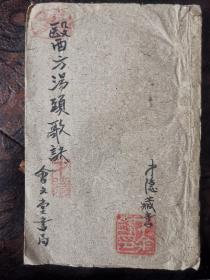 醫西方湯頭歌訣
會文堂書局
中隱藏書